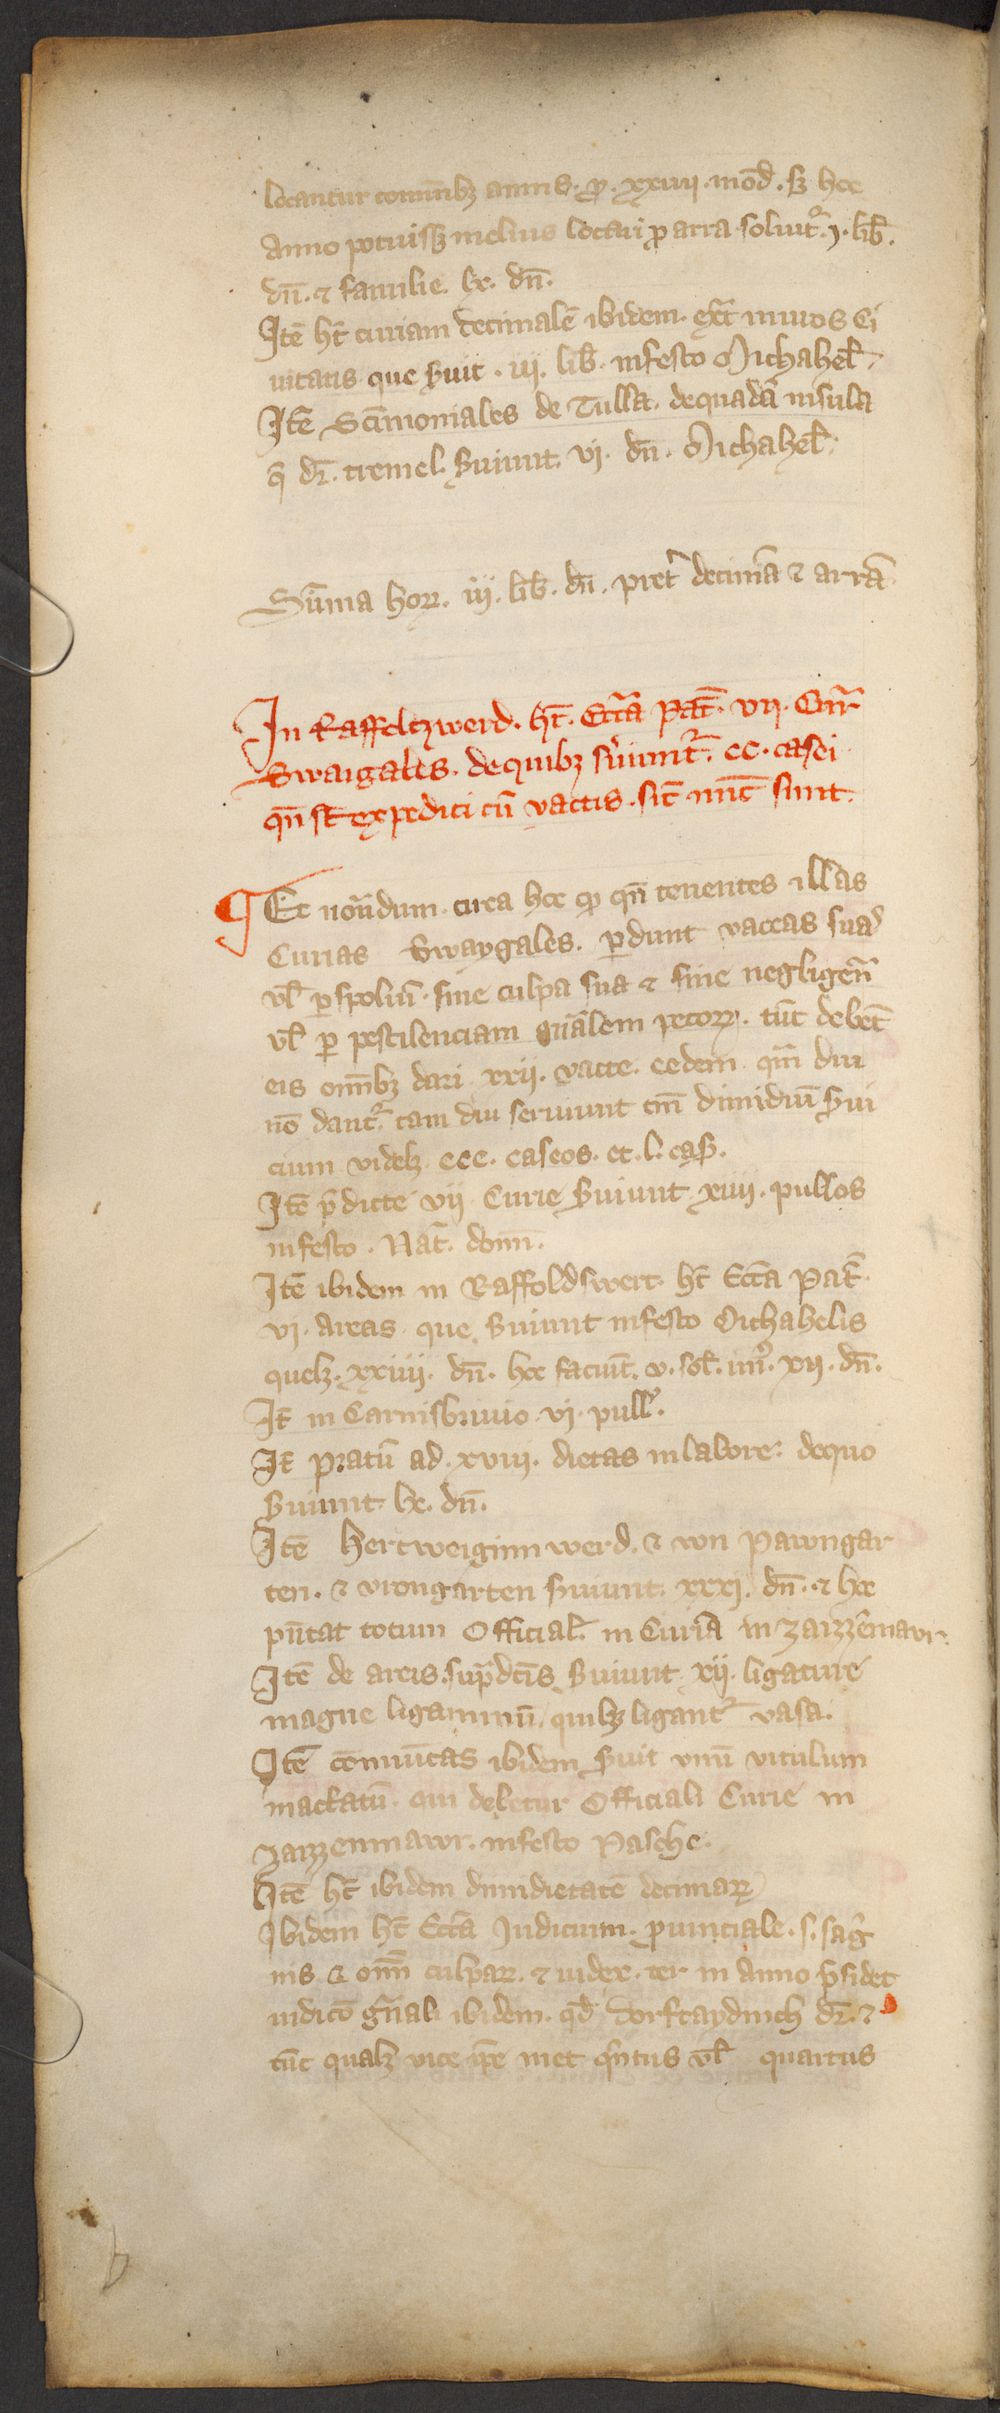 locantur com̄ībꝫ annis. ꝓ. xxiiii. mod̄. sꝫ hoc
Anno potuissꝫ melius locari ꝓ arra soluit᷑. j. lib̄.
dn̄. ⁊ familie. lx. dn̄.
Itē ht̄ curiam decimalē ibidem. ext̄ muros Ci
uitatis que s̄uit. iij. lib̄. infesto Michahel̄.
Itē Sc̄imoniales de Tulla. dequadā insula
q̄ dr̄. tremel. s̄uiunt. vj. dn̄. Michahel̄.
Sum̄a hoꝝ. iij. lib̄. dn̄. pret̄ decimā ⁊ arrā
In Raffoltzwerd. ht̄. Ecc̄a Pat̄. vij. Cur̄
Swaigales. dequibꝫ s̄uiunt᷑. cc. casei
qn̄ st̄ expediti cū vaccis. sic̄ nūc sunt.
¶ Et notan̄dum. circa hoc ꝙ qn̄ tenentes illas
Curias Swaygales. ꝑdunt vaccas suas
vl̄ ꝑ spoliū. sine culpa sua ⁊ sine negligen̄
vl̄ ꝑ pestilenciam gn̄alem pecoꝝ. tūc debēt
eis om̄ibꝫ dari xxij. vacce. eedem qm̄ diu
nō dant᷑. tam diu seruiunt tm̄ dimidiū s̄ui
cium videlꝫ. ccc. caseos. et. l. cas̄.
Itē p̄dicte vij Curie s̄uiunt. xiiij. pullos
infesto. Nat̄. domī.
Itē ibidem in Raffoldswert. ht̄ Ecc̄a Pat̄.
vj. areas. que s̄uiunt infesto Michahelis
quelꝫ. xxiiij. dn̄. hoc faciūt. v. sol̄. min᷒. xij. dn̄.
It̄ in Carnisbriuio. vj. pull̄.
It̄ pratū ad. xviij. dietas in labore: dequo
s̄uiunt. lx. dn̄.
Itē hertweiginn werd. ⁊ von Pawngar
ten. ⁊ vrongarten s̄uiunt. xxxj. dn̄. ⁊ hoc
pn̄tat totum Official̄. in Curia in zaizzēmavr.
Itē de areis sup̄dc̄is s̄uiunt xij. ligature
magne ligaminū, quibꝫ ligant᷑ vasa.
Itē cōmūitas ibidem s̄uit vnū vitulum
mactatū. qui debetur Officiali Curie in
zaizzenmavr. infesto Pasche.
Itē ht̄ ibidem dimidietatē decimaꝝ
Ibidem ht̄ Ecc̄a Iudicium. ꝓuinciale. s. sag̃
nis ⁊ om̄ culpaꝝ. ⁊ iudex. ter in Anno p̄sidet
iudico gn̄ali ibidem. qd̄ dorftaydinch dr̄. ⁊
tūc qualꝫ vice ip̄e met q̄ntus vl̄ quartus